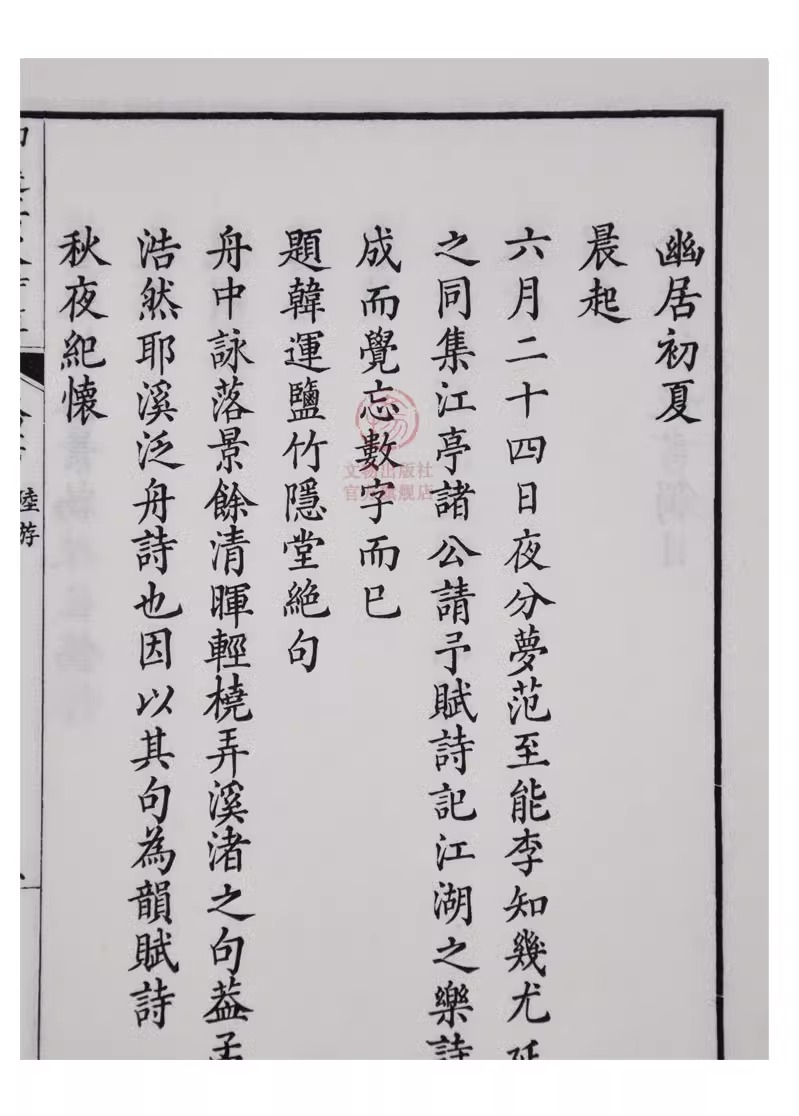 幽居初夏
晨起
六月二十四日夜分夢范至能李知幾尤延
之同集江亭諸公請予賦詩記江湖之樂詩
成而覺忘數字而已
題韓運鹽竹隱堂絶句
舟中詠落景餘清暉輕橈弄溪渚之句葢孟
浩然耶溪泛舟詩也因以其句為韻賦詩
秋夜紀懷
陸游
文物出版社
官方旗舰店